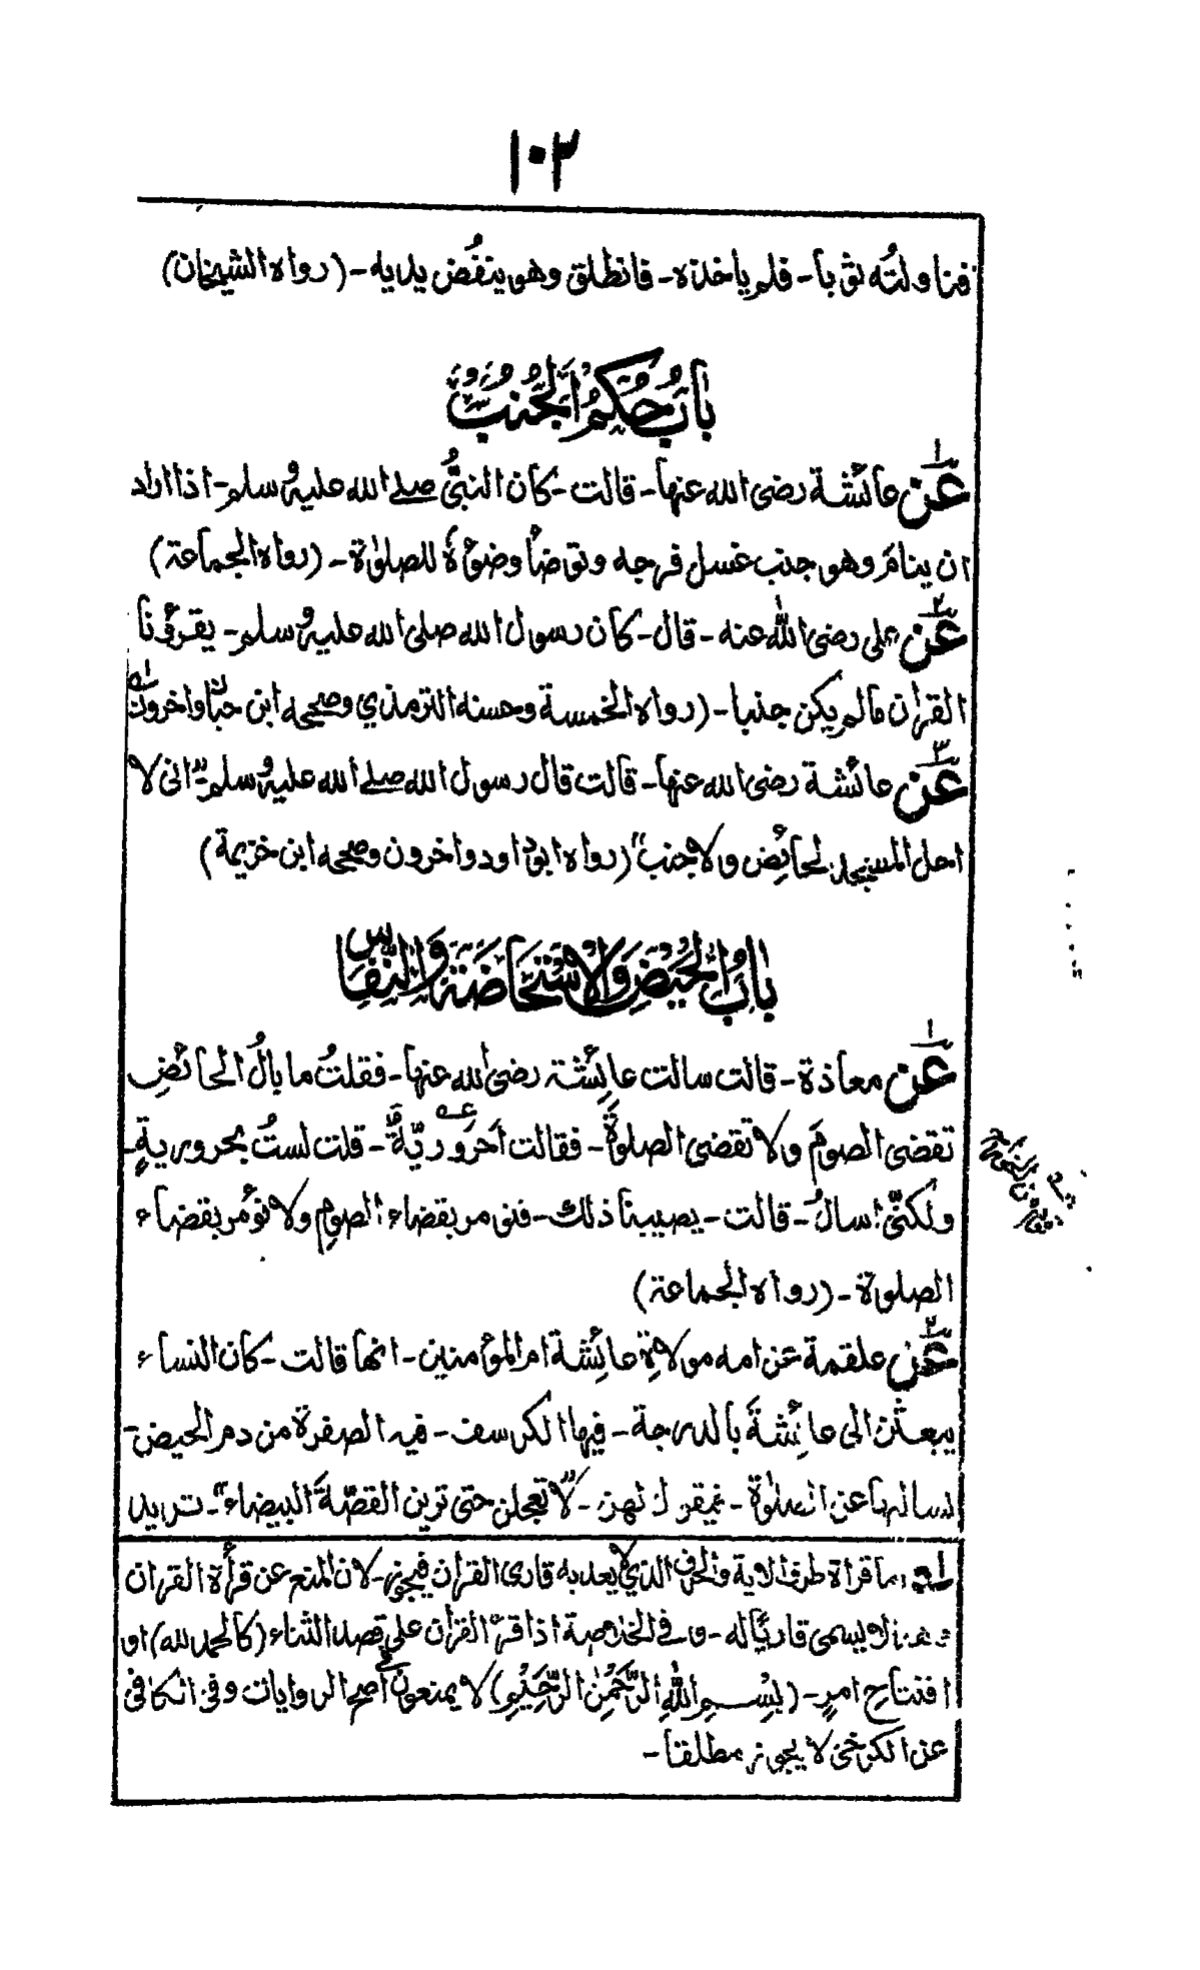 ١٠٢
فناولتُه ثوبا- فلم ياخذه- فانطلق وهو ينفُض يديه- (رواه الشيخان)
بابُ حُكمُ الجُنبُ
عن عائشة رضى الله عنها- قالت- كان النبىُّ صلے الله عليه وسلم- اذا اراد
ان ينام وهو جنب غسل فرجه وتوضأ وضوءَه للصلوٰة- (رواه الجماعة)
عن على رضى الله عنه- قال- كان رسول الله صلى الله عليه وسلم- يقرؤنا
القرٰان مالم يكن جنبا- (رواه الخمسة وحسنه الترمذي وصححه ابن حبان واخرون
عن عائشة رضى الله عنها- قالت قال رسول الله صلے الله عليه وسلم- "انى لا
احل المسجد لحائِض ولا جنب" (رواه ابوداود واخرون وصححه ابن خزيمة)
بابُ الحَيضِ وَالاستحَاضَة وَالنِفَاس
عن معاذة- قالت سالت عائِشة رضى الله عنها- فقلتُ ما بالُ الحائضِ
تقضى الصومَ ولا تقضى الصلوةَ- فقالت اَحَرُوريّةٌ- قلت لستُ بحروريةٍ-
ولكنّى اسالُ- قالت- يصيبنا ذلك- فنومر بقضاء الصومِ ولا نؤمر بقضاء
الصلوة- (رواه الجماعة)
عن علقمة عن امه مولاةِ عائِشة ام المؤمنين- انها قالت- كان النساء
يبعثن الى عائِشةَ بالدرجة- فيها الكرسف- فيه الصفرة من دم الحيض-
يسالنها عن الصلوٰة- فتقول لهن- "لا تعجلن حتى ترين القصّةَ البيضاء"- تريد
اما قراة طرف الاية والحرف الذي لا يعد به قارى القران فيجوز- لان المنع عن قرأة القران
لا يسمى قارئا له- و فے الخلاصة اذا قرء القران على قصد الثناء (كالحمد لله) او
افتتاح امرٍ- (بِسْمِ اللّٰهِ الرَّحْمٰنِ الرَّحِيْمِ) لا يمنعون فے اصح الروايات وفى الكافى
عن الكرخى لا يجوز مطلقا-